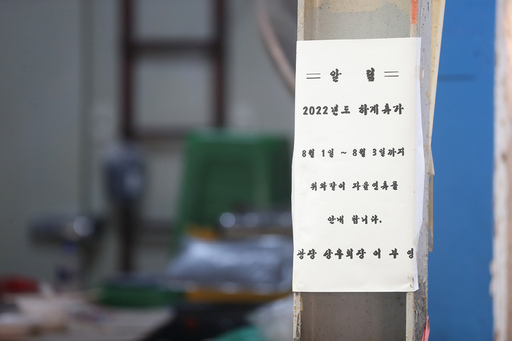 = 알 림 =
2022년도 하계휴가
8월 1일 ~ 8월 3일까지
위와같이 자율인휴를
안내 합니다.
광장 상우회장 이 부 영